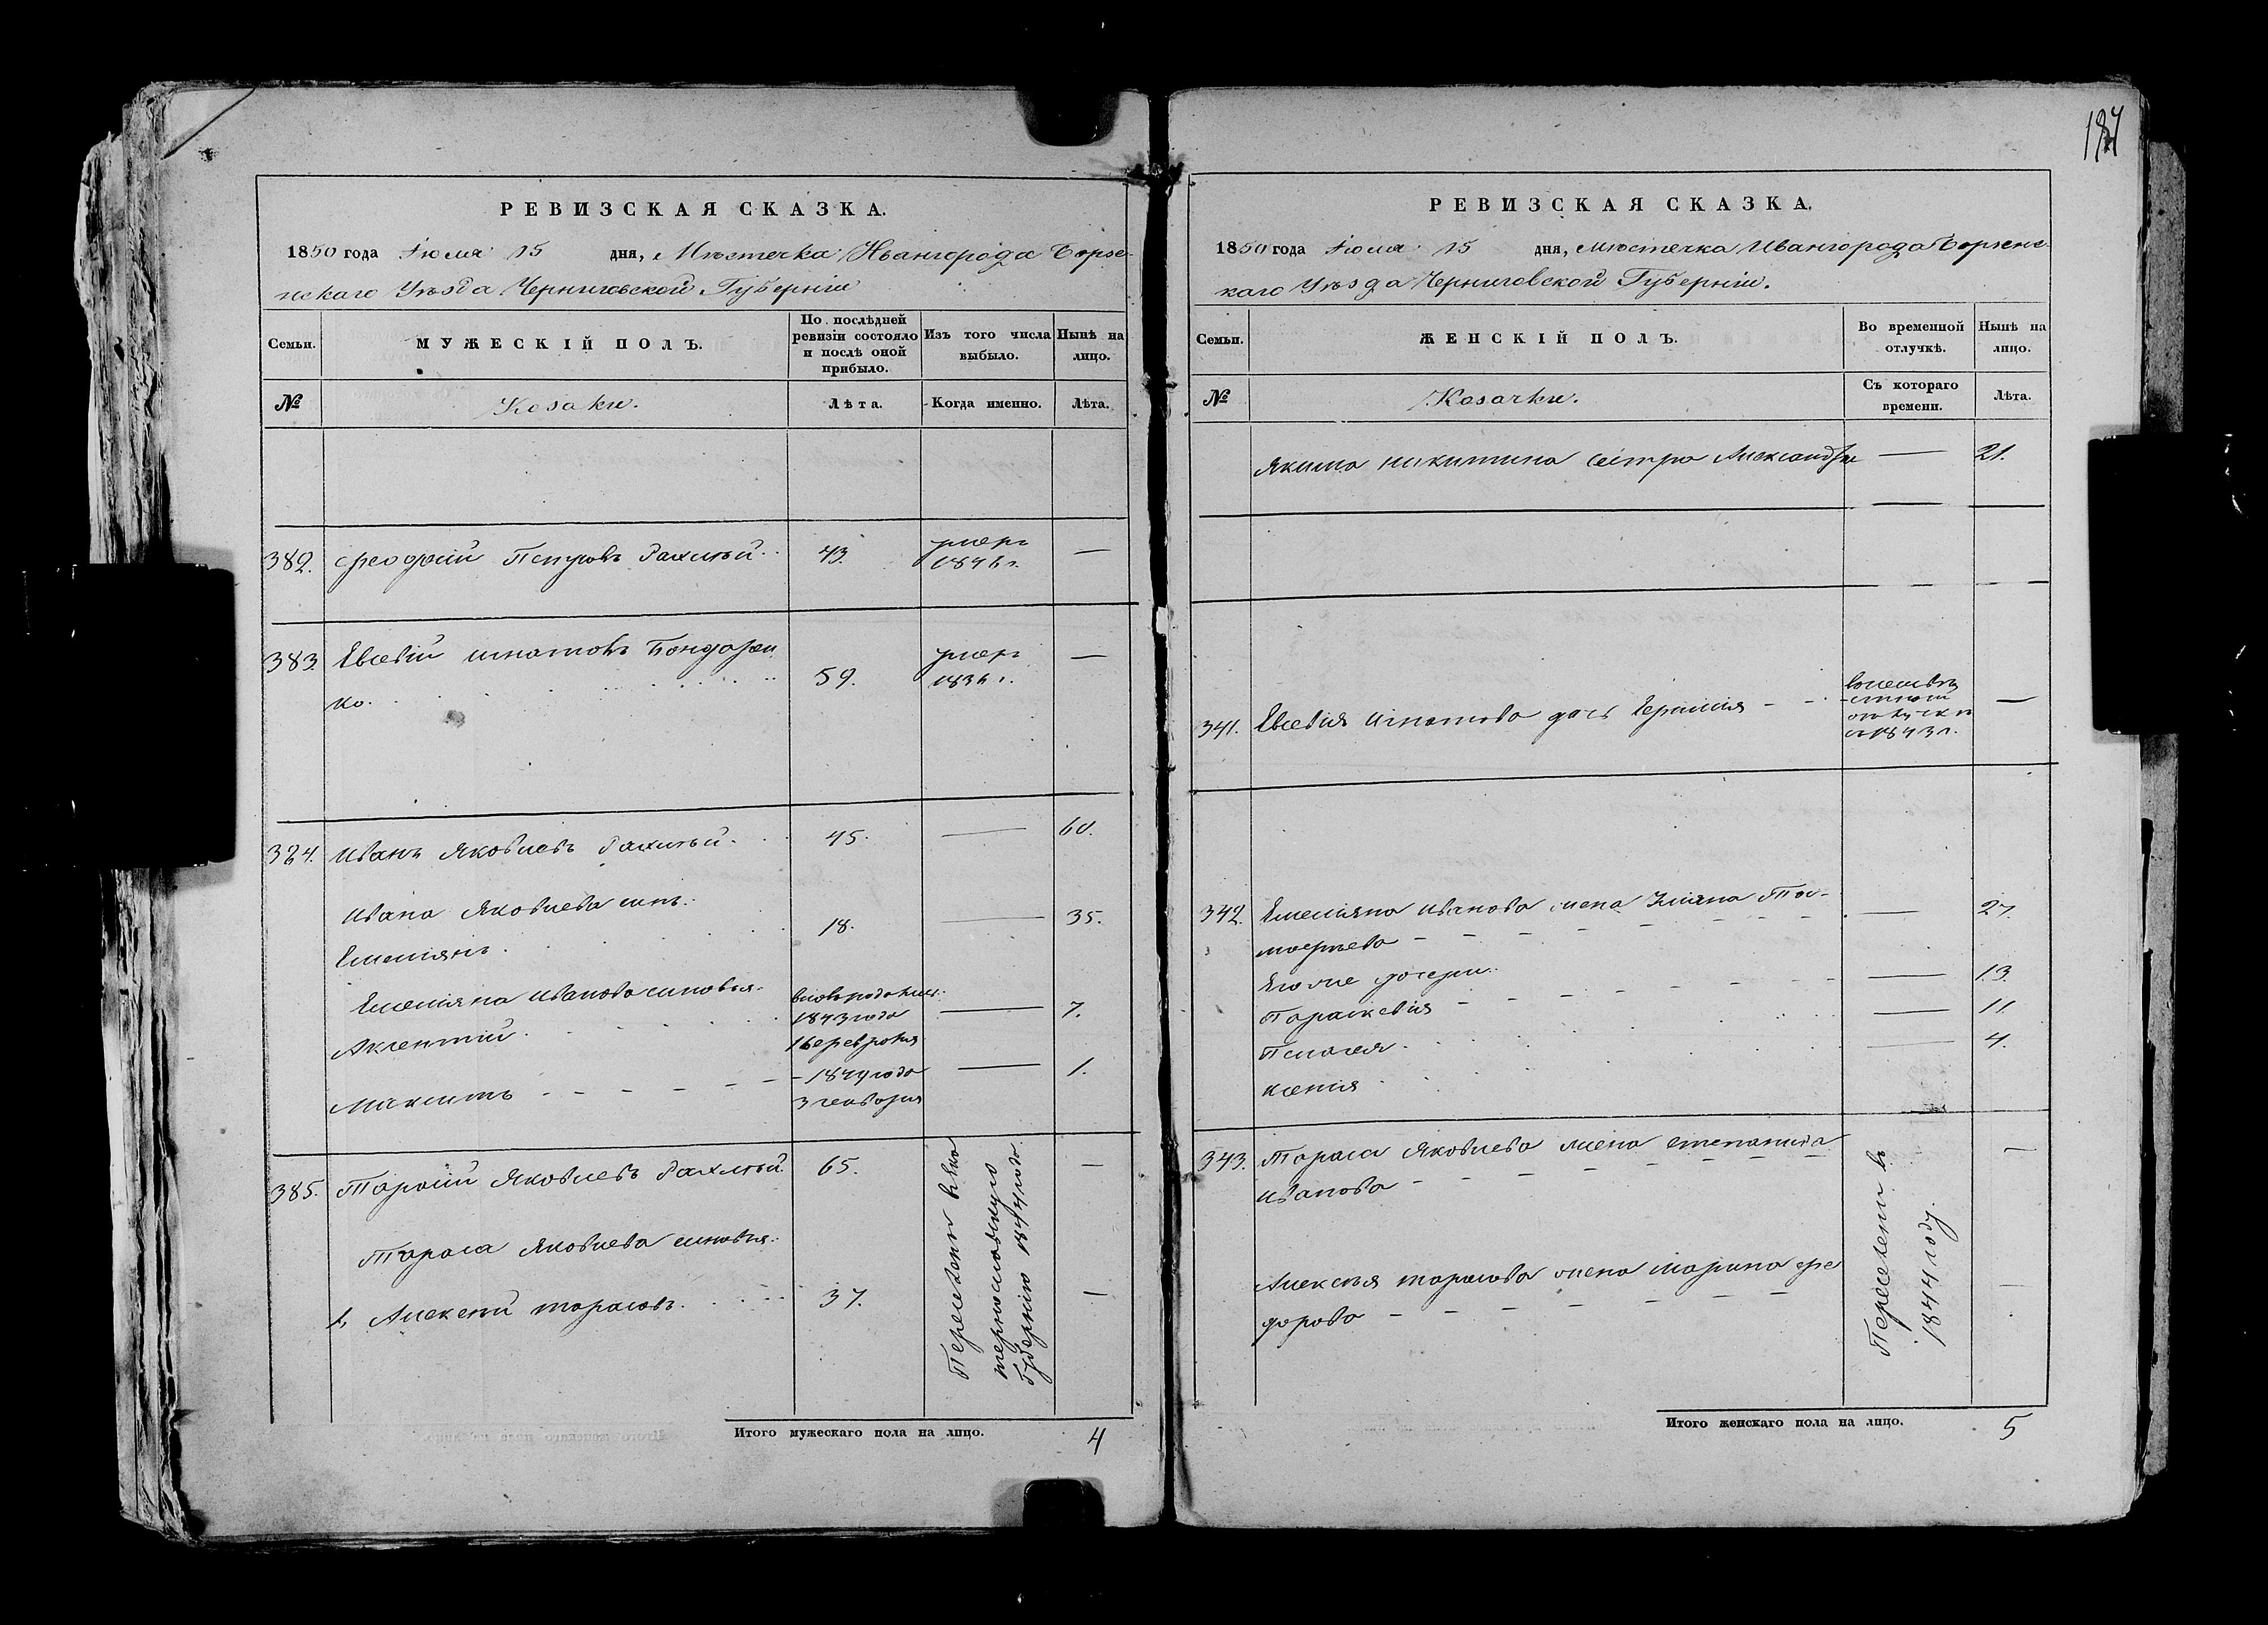 РЕВИЗСКАЯ СКАЗКА.
1850 года Іюля 15 дня, Мѣстечка Ивангорода Борзе-
нскаго Уѣзда Черниговской Губерніи
Семьи. МУЖЕСКІЙ ПОЛЪ. По послѣдней ревизіи состояло и послѣ оной прибыло. Изъ того числа выбыло. Нынѣ на лицо.
№ Козаки. Лѣта. Когда именно. Лѣта.
382. Петровъ 43. умеръ —
1846 г.
383. Евсевій Игнатовъ Бондарен
ко. 59. умеръ 1836 г. —
384. Иванъ Яковлевъ 45. — 60.
Ивана Яковлева сынъ.
Емеліянъ. 18. — 35.
Емеліяна Иванова сыновья.
Аксентій. 1843 года — 7.
16 февраля
Максимъ — 1849 года — 1.
3 генваря
385. Тарасій Яковлевъ 65. —
Тараса Яковлева сыновья.
1, Алексѣй Тарасовъ. 37. —
Переселены въ Ека
теринославскую
Губернію 1844 года
Итого мужескаго пола на лицо. 4
РЕВИЗСКАЯ СКАЗКА.
1850 года Іюля 15 дня, Мѣстечка Ивангорода Борзенс-
каго Уѣзда Черниговской Губерніи.
Семьи. ЖЕНСКІЙ ПОЛЪ. Во временной отлучкѣ. Нынѣ на лицо.
№ Козачки. Съ котораго времени. Лѣта.
Якима Никитина сестра Александра — 21.
341. Евсевія Игнатова дочь —
отлучкѣ
съ 1843 г.
342. Емеліяна Иванова жена Уліяна Тим-
офеева — 27.
Его же дочери.
Параскевія — 13.
Пелагея — 11.
Ксенія — 4.
343. Тараса Яковлева жена Степанида
Иванова —
Алексѣя Тарасова жена Марина Фе
дорова —
Переселены въ
1844 году.
Итого женскаго пола на лицо. 5